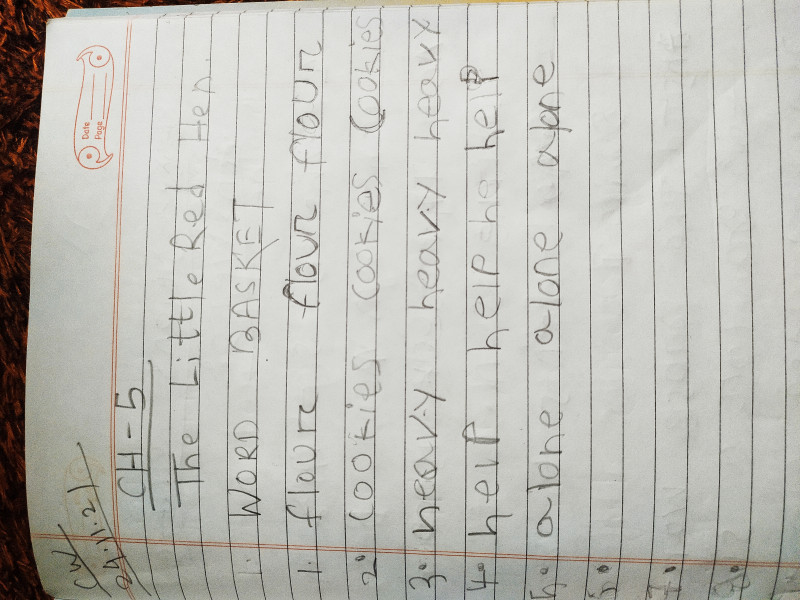 Date
Page
CW
24.11.21
CH-5
The Little Red Hen.
1. WORD BASKET
1. flour flour flour
2. cookies cookies cookies
3. heavy heavy heavy
4. help help help
5. alone alone alone